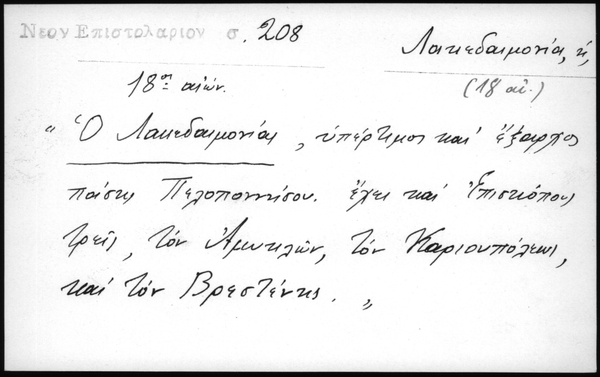 Νεον Επιστολαριον σ. 208
Λακεδαιμονία, ἡ,
(18 αἰ.)
18ος αἰών.
"Ὁ Λακεδαιμονίας, ὑπέρτιμος καὶ ἔξαρχος
πάσης Πελοποννήσου. ἔχει καὶ Ἐπισκόπους
τρεῖς, τὸν Ἀμυκλῶν, τὸν Καριουπόλεως,
καὶ τὸν Βρεστένης. "